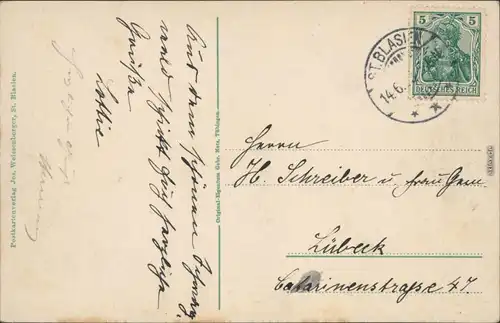 Aus dem schönen Schwarz-
wald schickt Euch herzliche
Grüße
Lottie
Postkartenverlag Jos. Weissenberger, St. Blasien.
Original-Eigentum Gebr. Metz, Tübingen.
5 5
DEUTSCHES REICH
ST. BLASIEN
14.6.
Herrn
H. Schreiber u. Frau Gem.
Lübeck
Catarinenstraße 47.